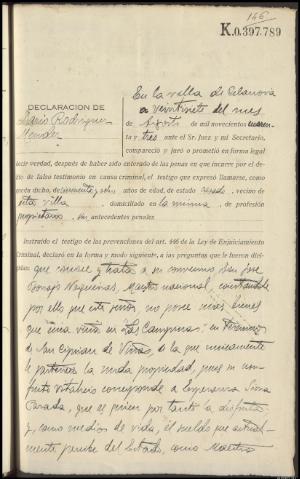 146
K.0.397.789
En la villa de Celanova
a veintinueve del mes
DECLARACION DE
Dario Rodriguez
Mendez
de Agosto de mil novecientos cuaren-
ta y tres ante el Sr. Juez y mi Secretario,
compareció y juró o prometió en forma legal
decir verdad, después de haber sido enterado de las penas en que incurre por el
delito de falso testimonio en causa criminal, el testigo que expresó llamarse, como
queda dicho, de años de edad, de estado casado, vecino de
esta villa domiciliado en la misma de profesión
propietario sin antecedentes penales.
Instruido el testigo de las prevenciones del art. 446 de la Ley de Enjuiciamiento
Criminal, declaró en la forma y modo siguiente, a las preguntas que le fueron dirigidas:
que conoce y trata a su convecino Don José
Nogueiras, Maestro nacional, constándole
por ello que este señor, no posee más bienes
que una viña en "La Campina", en términos
de San Ciprian de Viñas, de la que unicamente
le pertenece la nuda propiedad, pues su usu-
fruto vitalicio corresponde a Esperanza
Parada, que es quien por tanto la disfruta
y, como medios de vida, el sueldo que actual-
mente percibe del Estado, como Maestro